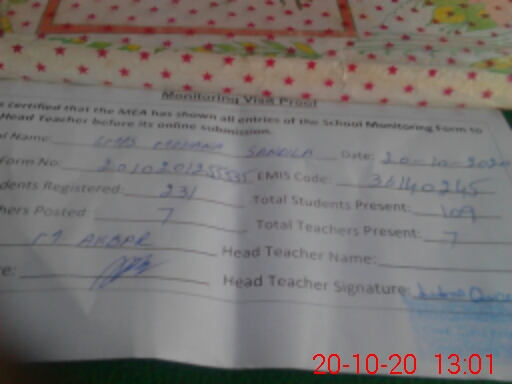 Monitoring Visit Proof
s certified that the MEA has shown all entries of the School Monitoring Form to
Head Teacher before its online submission.
ol Name: Date: 20-10-2020
Form No: EMIS Code: 36140245
dents Registered: 231 Total Students Present: 109
hers Posted: 7 Total Teachers Present: 7
M. AKBAR Head Teacher Name:
re: Head Teacher Signature:
20-10-20 13:01